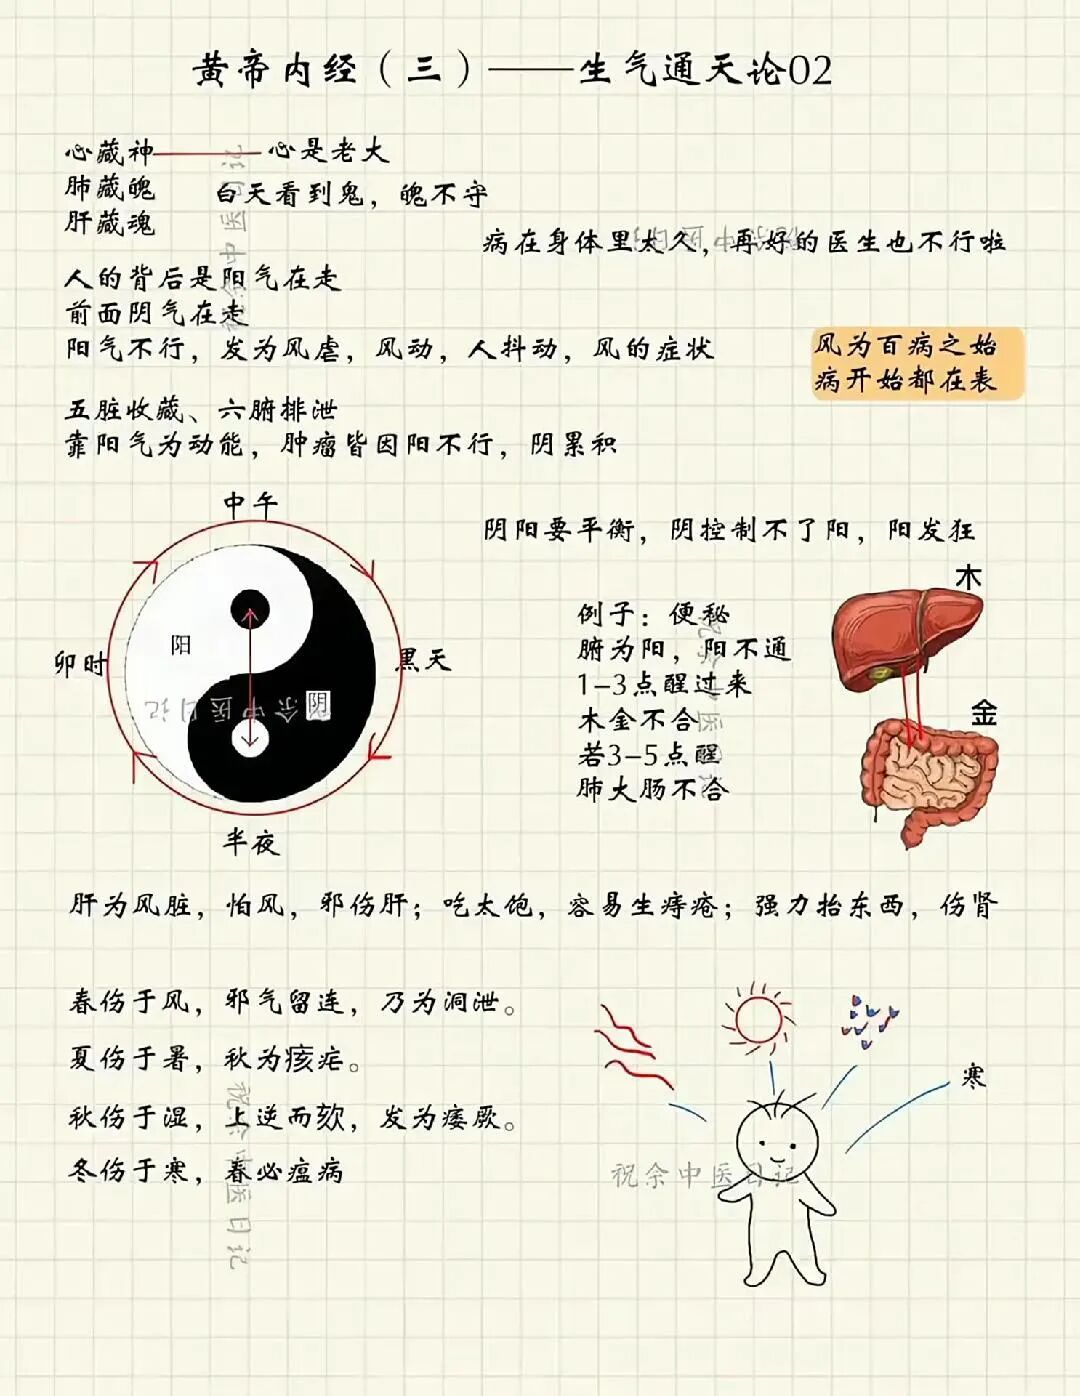 黄帝内经（三）——生气通天论02
心藏神——心是老大
肺藏魄 白天看到鬼，魄不守
肝藏魂
病在身体里太久，再好的医生也不行啦
人的背后是阳气在走
前面阴气在走
阳气不行，发为风虐，风动，人抖动，风的症状
风为百病之始
病开始都在表
五脏收藏、六腑排泄
靠阳气为动能，肿瘤皆因阳不行，阴累积
中午
阳
阴
卯时
黑天
半夜
阴阳要平衡，阴控制不了阳，阳发狂
例子：便秘
腑为阳，阳不通
1-3点醒过来
木金不合
若3-5点醒
肺大肠不合
木
金
肝为风脏，怕风，邪伤肝；吃太饱，容易生痔疮；强力抬东西，伤肾
春伤于风，邪气留连，乃为洞泄。
夏伤于暑，秋为痎疟。
秋伤于湿，上逆而欬，发为痿厥。
冬伤于寒，春必瘟病
寒
祝余中医日记
祝余中医日记
祝余中医日记
祝余中医日记
祝余中医日记
祝余中医日记